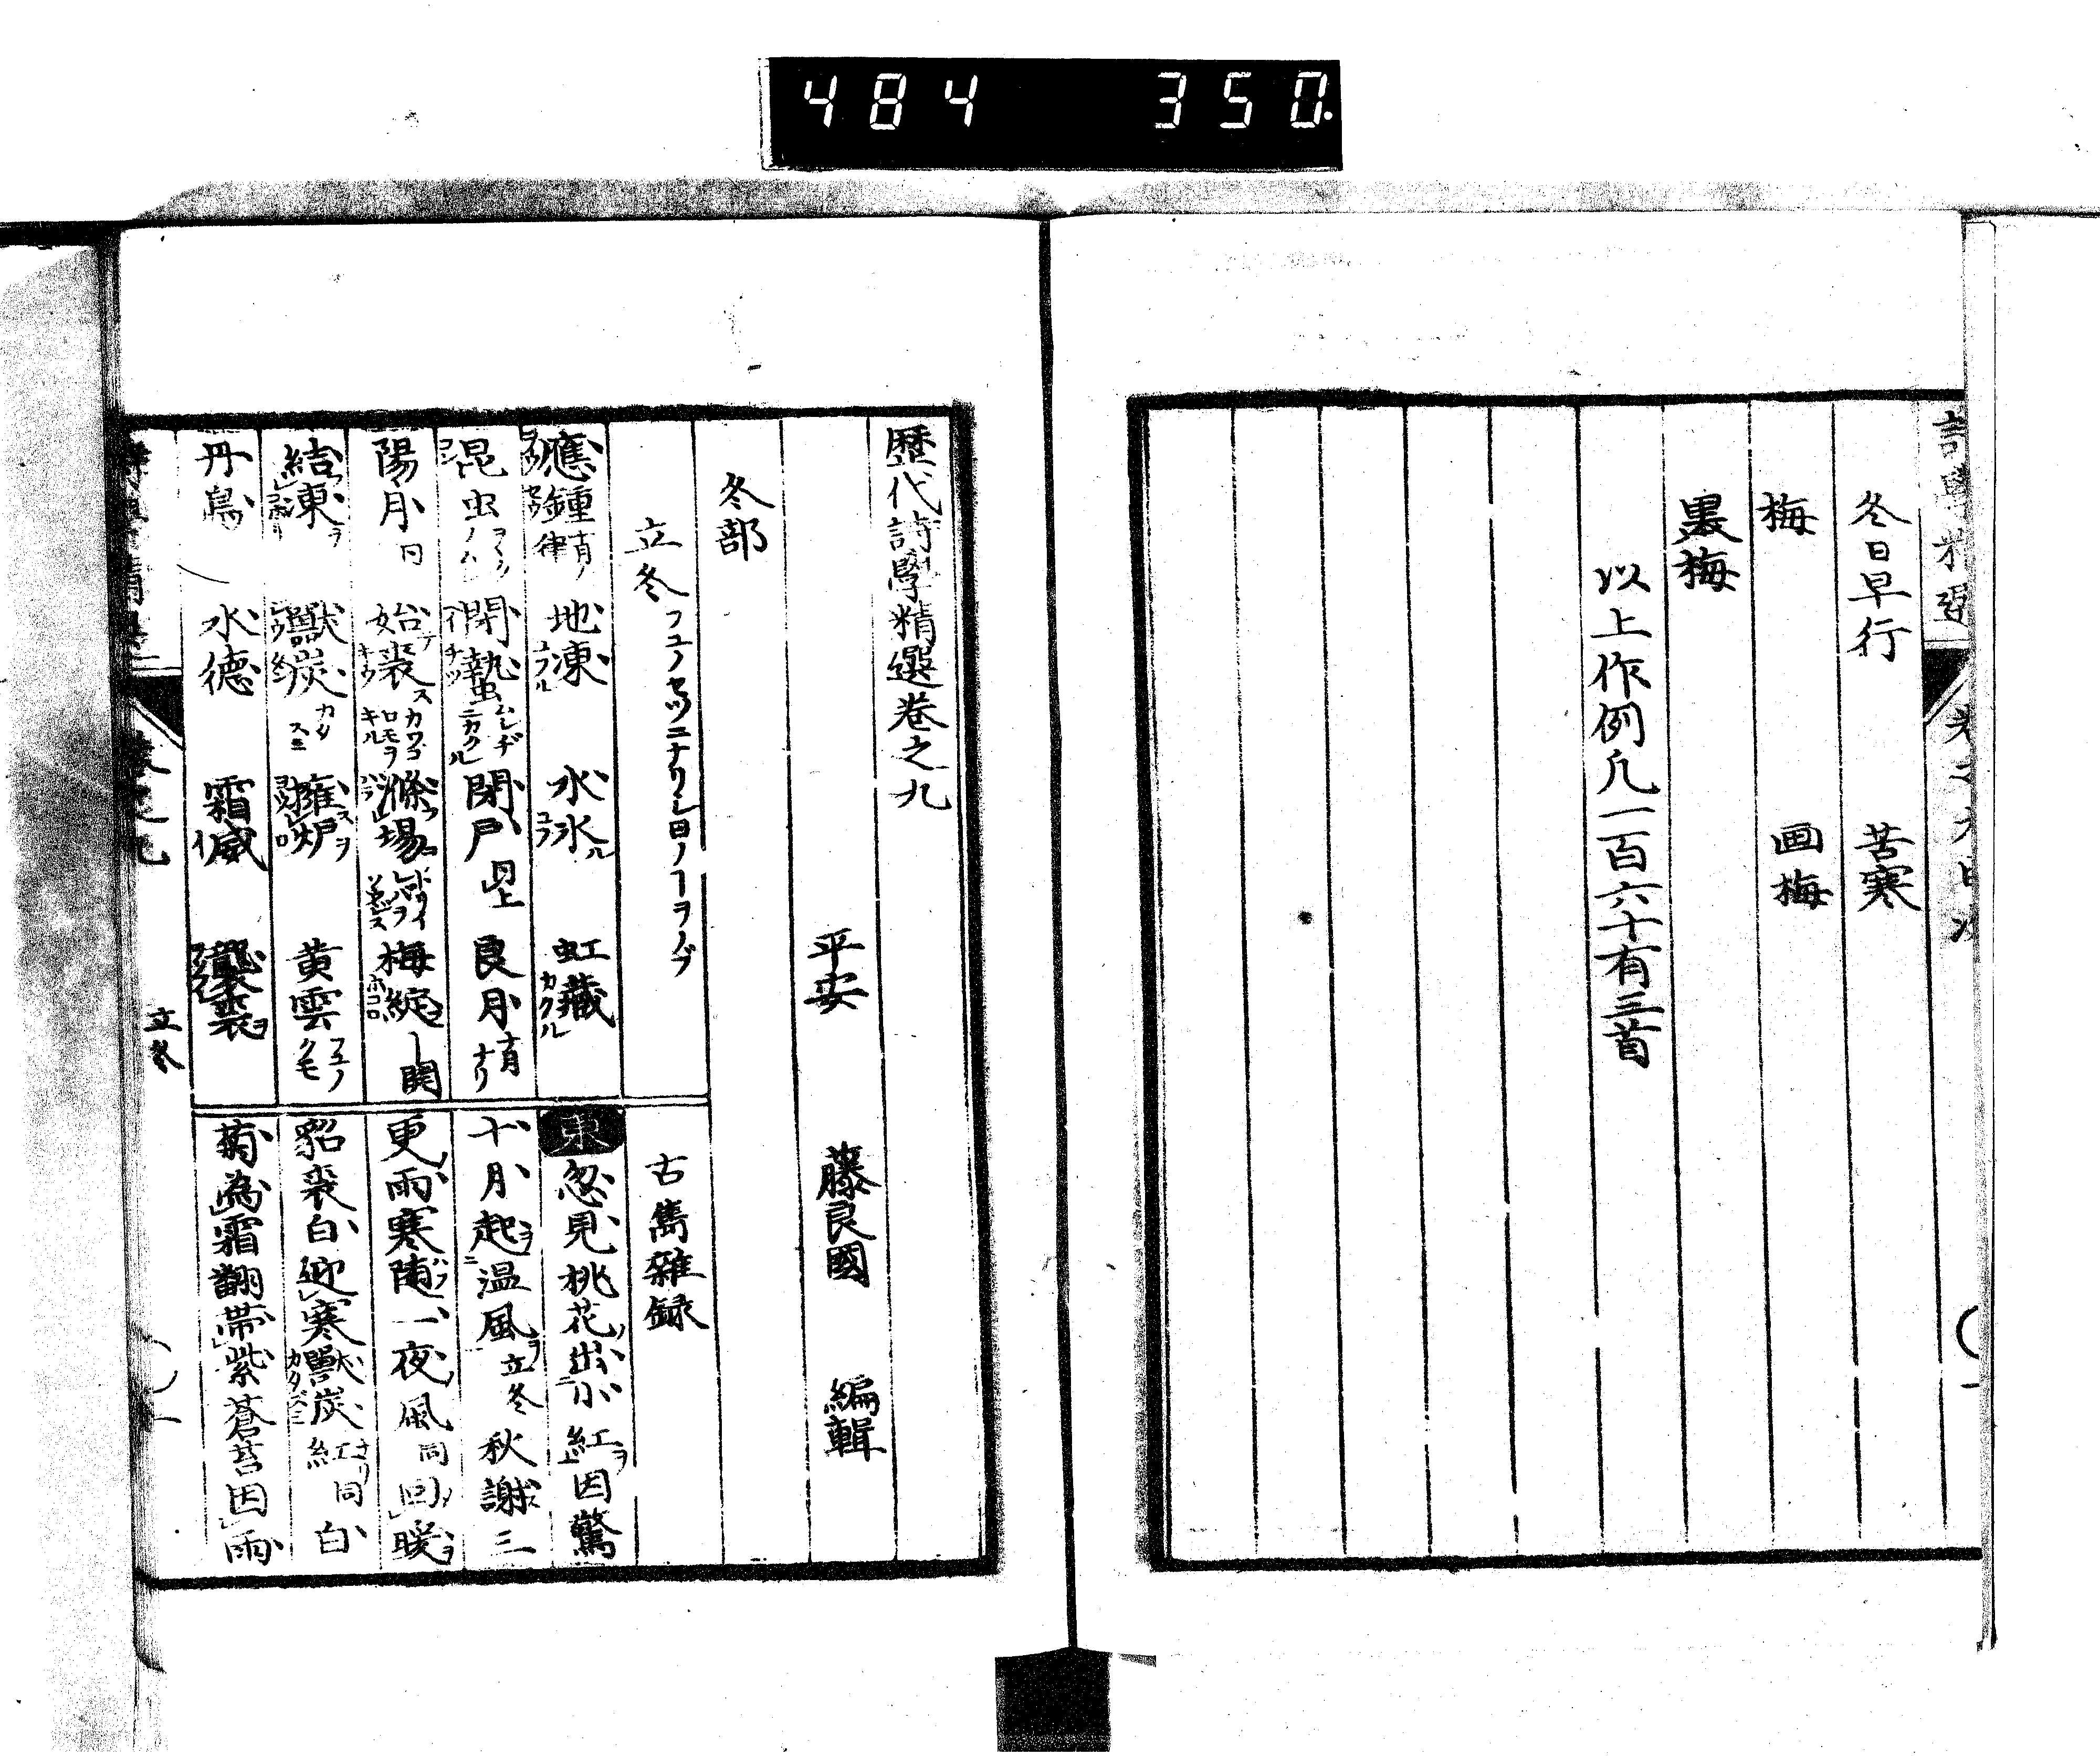 484 350
冬日早行 苦寒
梅 画梅
墨梅
以上作例凡一百六十有三首
歷代詩學精選卷之九
平安 藤良國 編輯
冬部
立冬 フユノセツニナリシ日ノコヲノブ
古雋雜録
應鍾 十月ノ律 地凍 水氷 虹藏 カクル
忽見桃花出小紅因驚
昆虫 閉蟄 閉戸 同上 良月 十月ナリ
十月起温風 立冬 秋謝三
陽月 同 始裘 滌場 梅綻 開
更雨寒随一夜風 同 回暖
結凍 獸炭 擁炉 黄雲 フユノクモ
貂裘白迎寒獸炭紅 同 白
丹鳥 水德 霜威 襲裘
菊為霜翻帯紫蒼苔因雨
立冬